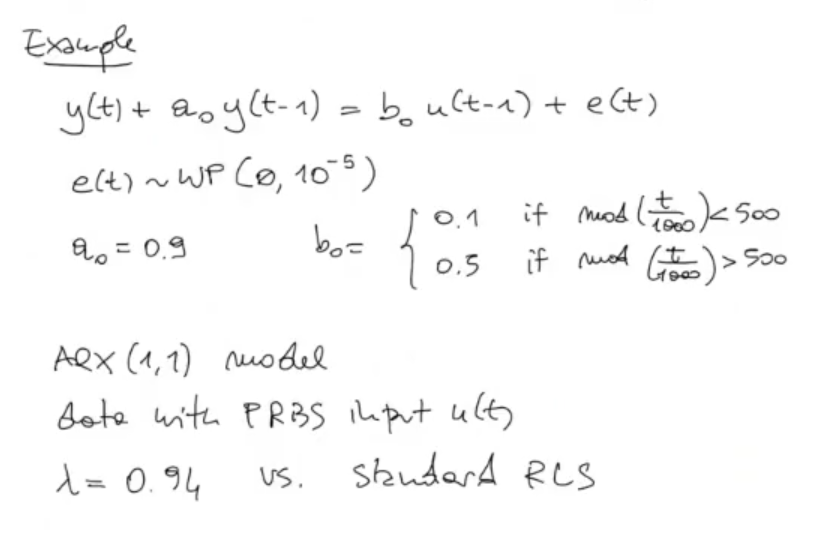 Example
y(t) + a₀ y(t-1) = b₀ u(t-1) + e(t)
e(t) ~ WP (0, 10⁻⁵)
a₀ = 0.9 b₀ = { 0.1 if mod (t/1000) < 500
0.5 if mod (t/1000) > 500
ARX (1,1) model
data with PRBS input u(t)
λ = 0.94 vs. standard RLS